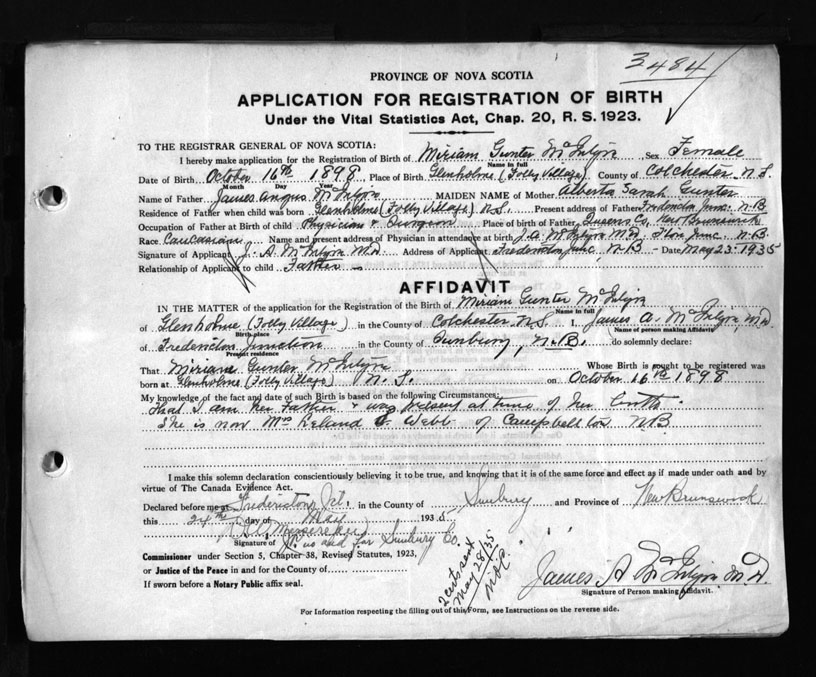 3484
PROVINCE OF NOVA SCOTIA
APPLICATION FOR REGISTRATION OF BIRTH
Under the Vital Statistics Act, Chap. 20, R. S. 1923.
TO THE REGISTRAR GENERAL OF NOVA SCOTIA:
I hereby make application for the Registration of Birth of Miriam Gunter McIntyre Sex Female
Name in full
Date of Birth October 16th 1898 Place of Birth Glenholme (Folly Village) County of Colchester N.S.
Month Day Year
Name of Father James Angus McIntyre MAIDEN NAME of Mother Alberta Sarah Gunter
Residence of Father when child was born Glenholme (Folly Village) N.S. Present address of Father Fredericton Junc. N.B.
Occupation of Father at Birth of child Physician & Surgeon Place of birth of Father Queens Co. New Brunswick
Race Caucasian Name and present address of Physician in attendance at birth J.A. McIntyre M.D. Fton Junc. N.B.
Signature of Applicant J. A. McIntyre M.D. Address of Applicant Fredericton Junc. N.B. Date May 23-1935
Relationship of Applicant to child Father
AFFIDAVIT
IN THE MATTER of the application for Registration of the Birth of Miriam Gunter McIntyre
Name in full
of Glenholme (Folly Village) in the County of Colchester N.S. I, James A. McIntyre M.D.
Birth place Name of person making Affidavit
of Fredericton Junction in the County of Sunbury, N.B. do solemnly declare:
Present residence
That Miriam Gunter McIntyre Whose Birth is sought to be registered was
born at Glenholme (Folly Village) N.S. on October 16th 1898
My knowledge of the fact and date of such Birth is based on the following Circumstances:
that I am her Father & was present at time of her birth.
She is now Mrs Leland C. Webb of Campbellton N.B.
I make this solemn declaration conscientiously believing it to be true, and knowing that it is of the same force and effect as if made under oath and by
virtue of The Canada Evidence Act.
Declared before me at Fredericton Jct. in the County of Sunbury and Province of New Brunswick
this 24th day of May 1935
Signature of in and for Sunbury Co.
Commissioner under Section 5, Chapter 38, Revised Statutes, 1923,
or Justice of the Peace in and for the County of
If sworn before a Notary Public affix seal.
2 certs sent
May 28/35
James A McIntyre M.D.
Signature of Person making Affidavit.
For Information respecting the filling out of this Form, see Instructions on the reverse side.